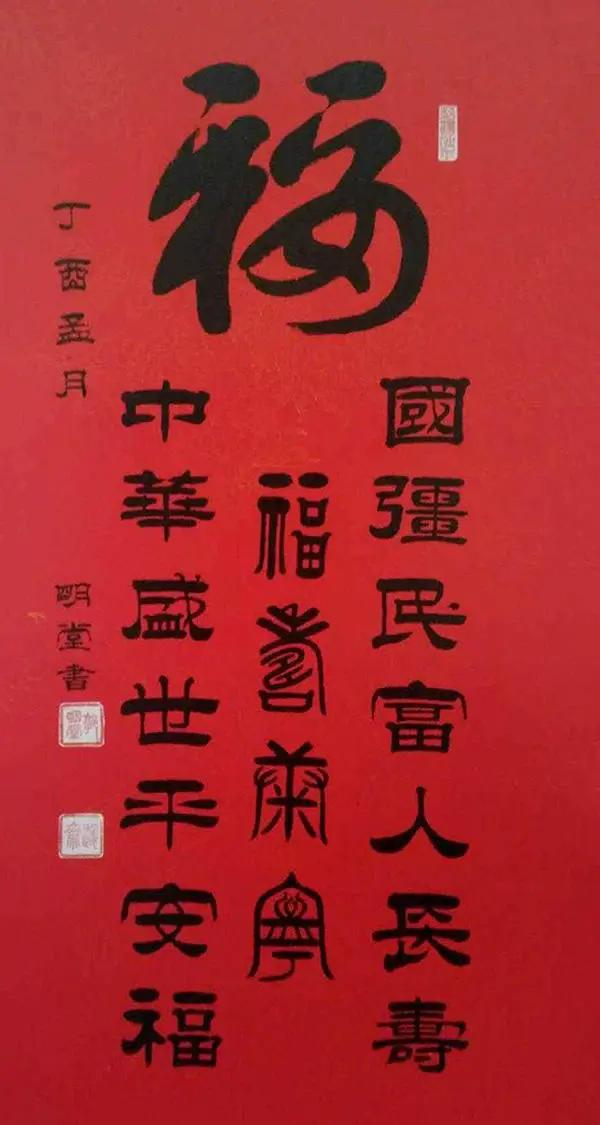 福
國彊民富人長壽
福壽康寧
中華盛世平安福
丁酉孟月
明堂書